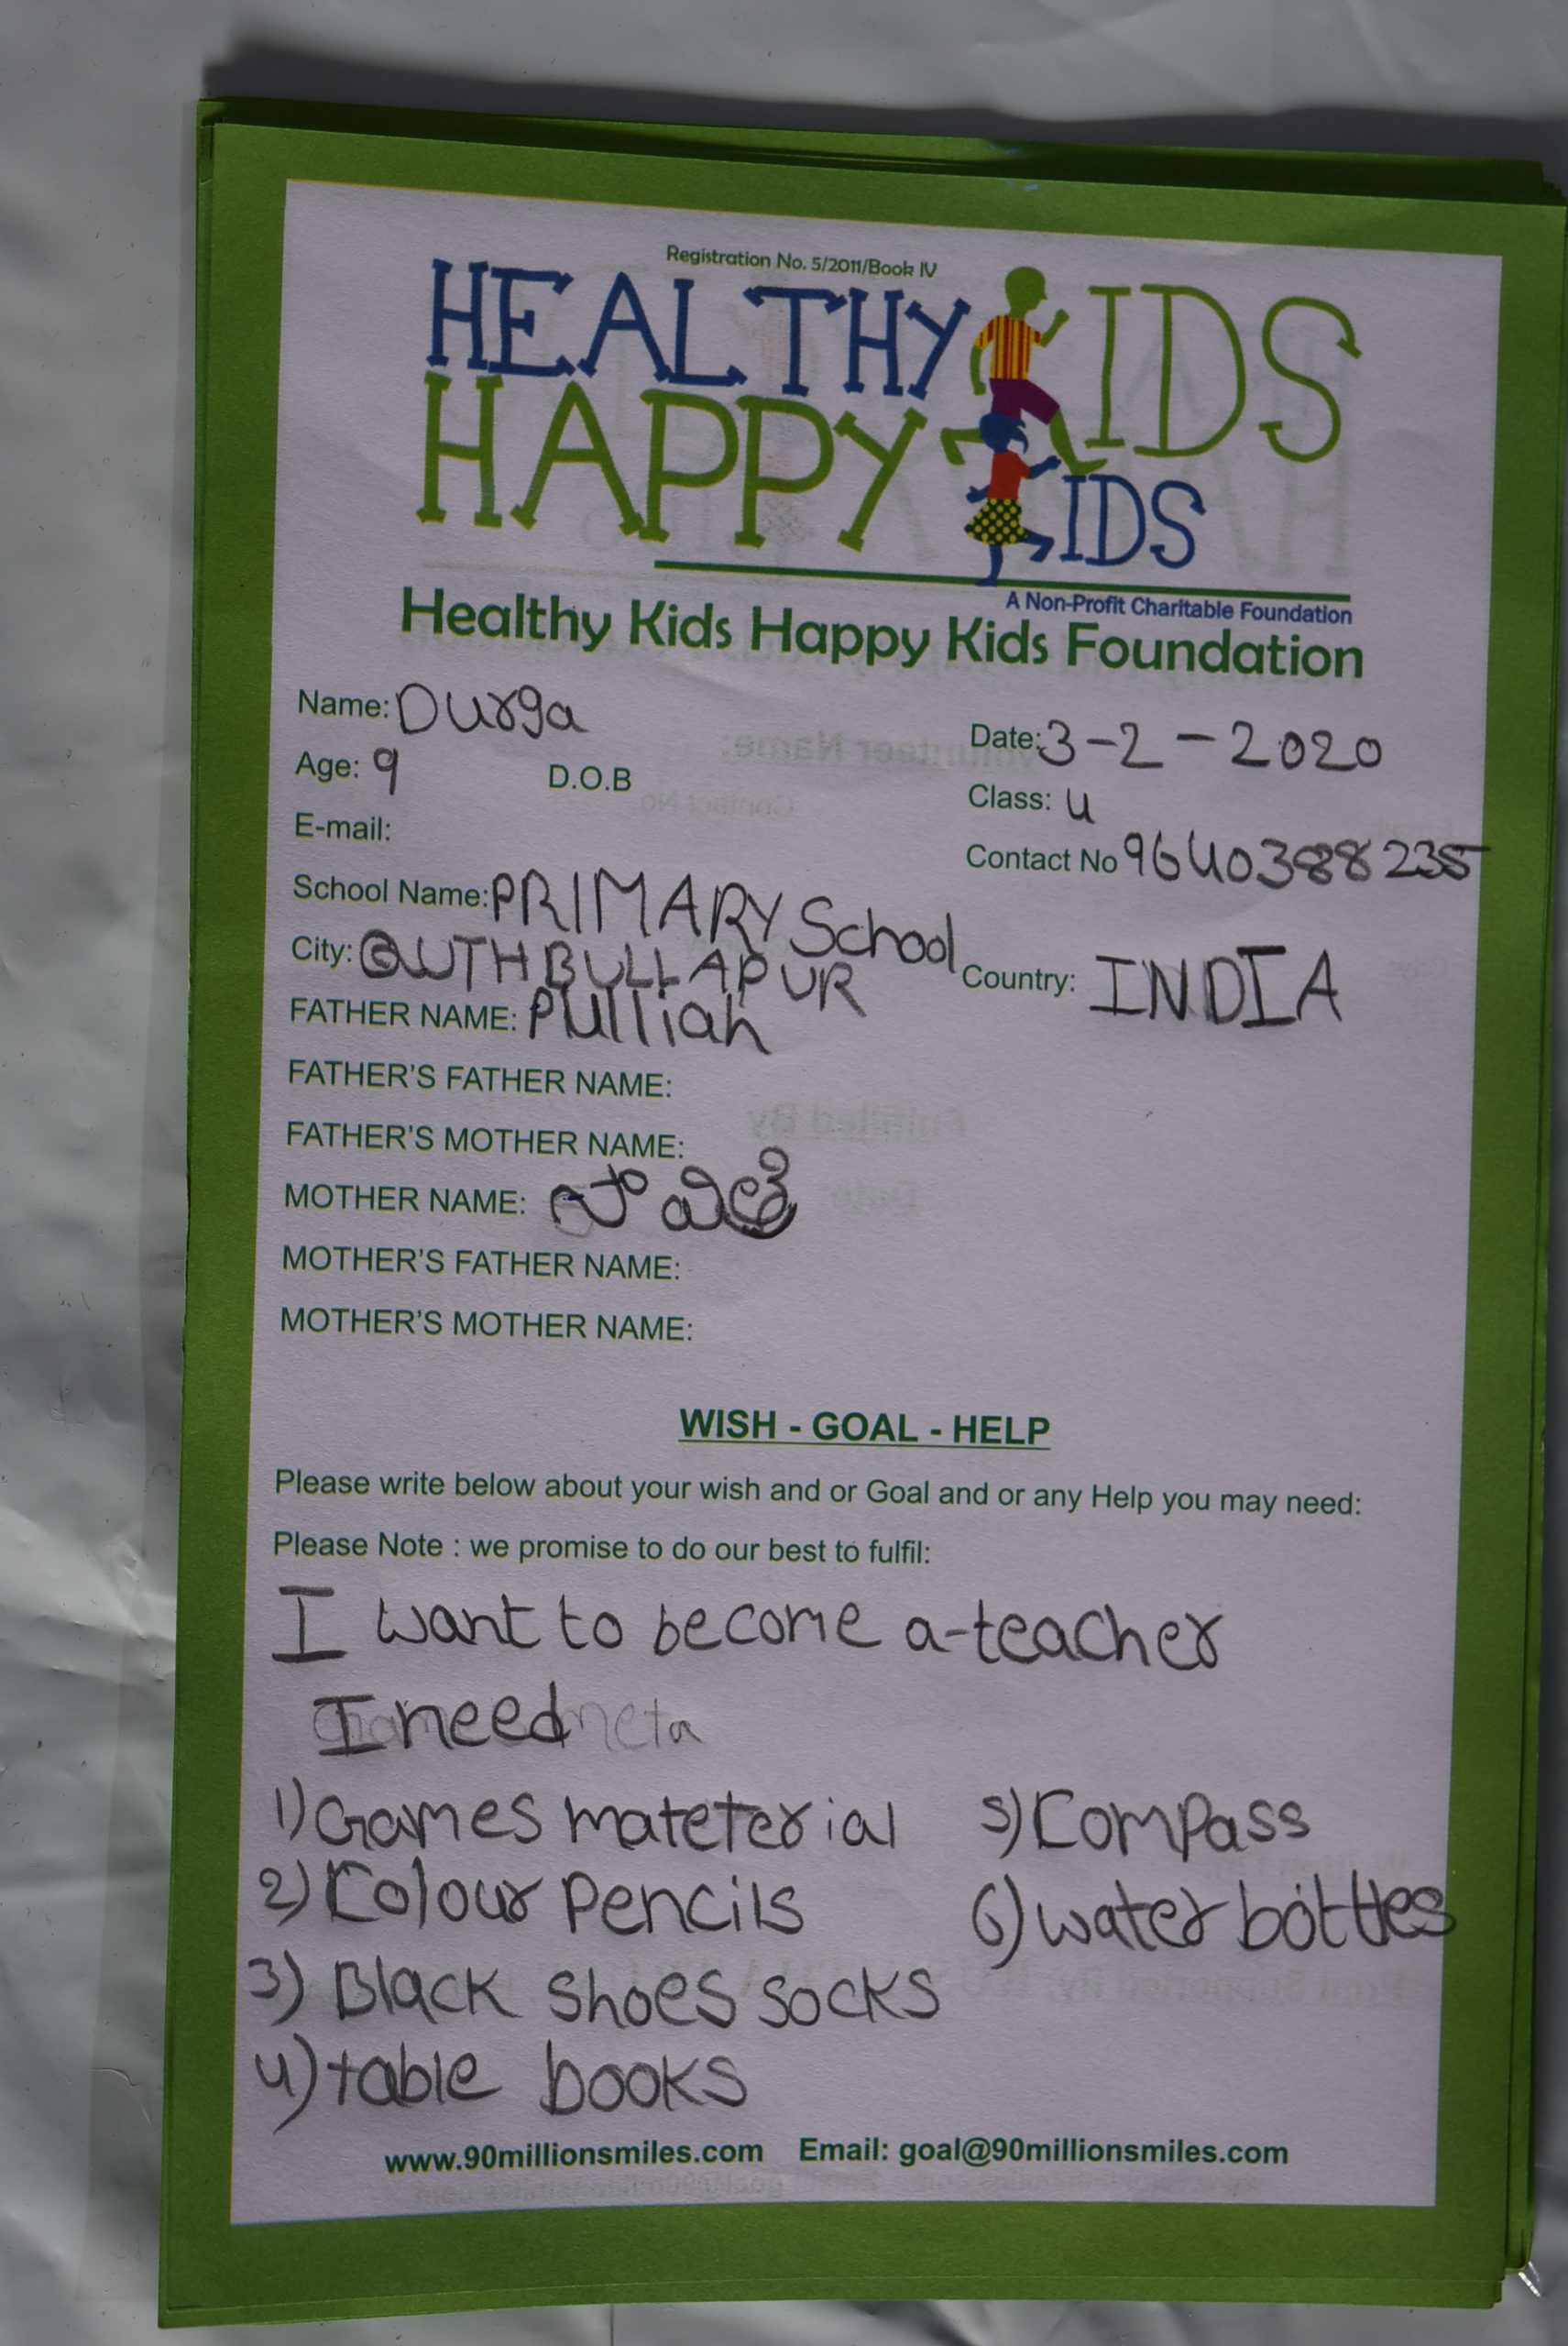 Registration No. 5/2011/Book IV
HEALTHY KIDS
HAPPY KIDS
A Non-Profit Charitable Foundation
Healthy Kids Happy Kids Foundation
Name: Durga
Date: 3-2-2020
Age: 9 D.O.B
Class: 4
E-mail:
Contact No 9640388235
School Name: PRIMARY School
City: QUTHBULLAPUR Country: INDIA
FATHER NAME: Pulliah
FATHER'S FATHER NAME:
FATHER'S MOTHER NAME:
MOTHER NAME: సావిత్రి
MOTHER'S FATHER NAME:
MOTHER'S MOTHER NAME:
WISH - GOAL - HELP
Please write below about your wish and or Goal and or any Help you may need:
Please Note : we promise to do our best to fulfil:
I want to become a-teacher
I need
1) Games mateterial 5) Compass
2) Colour Pencils 6) water bottles
3) Black shoes socks
4) table books
www.90millionsmiles.com Email: goal@90millionsmiles.com